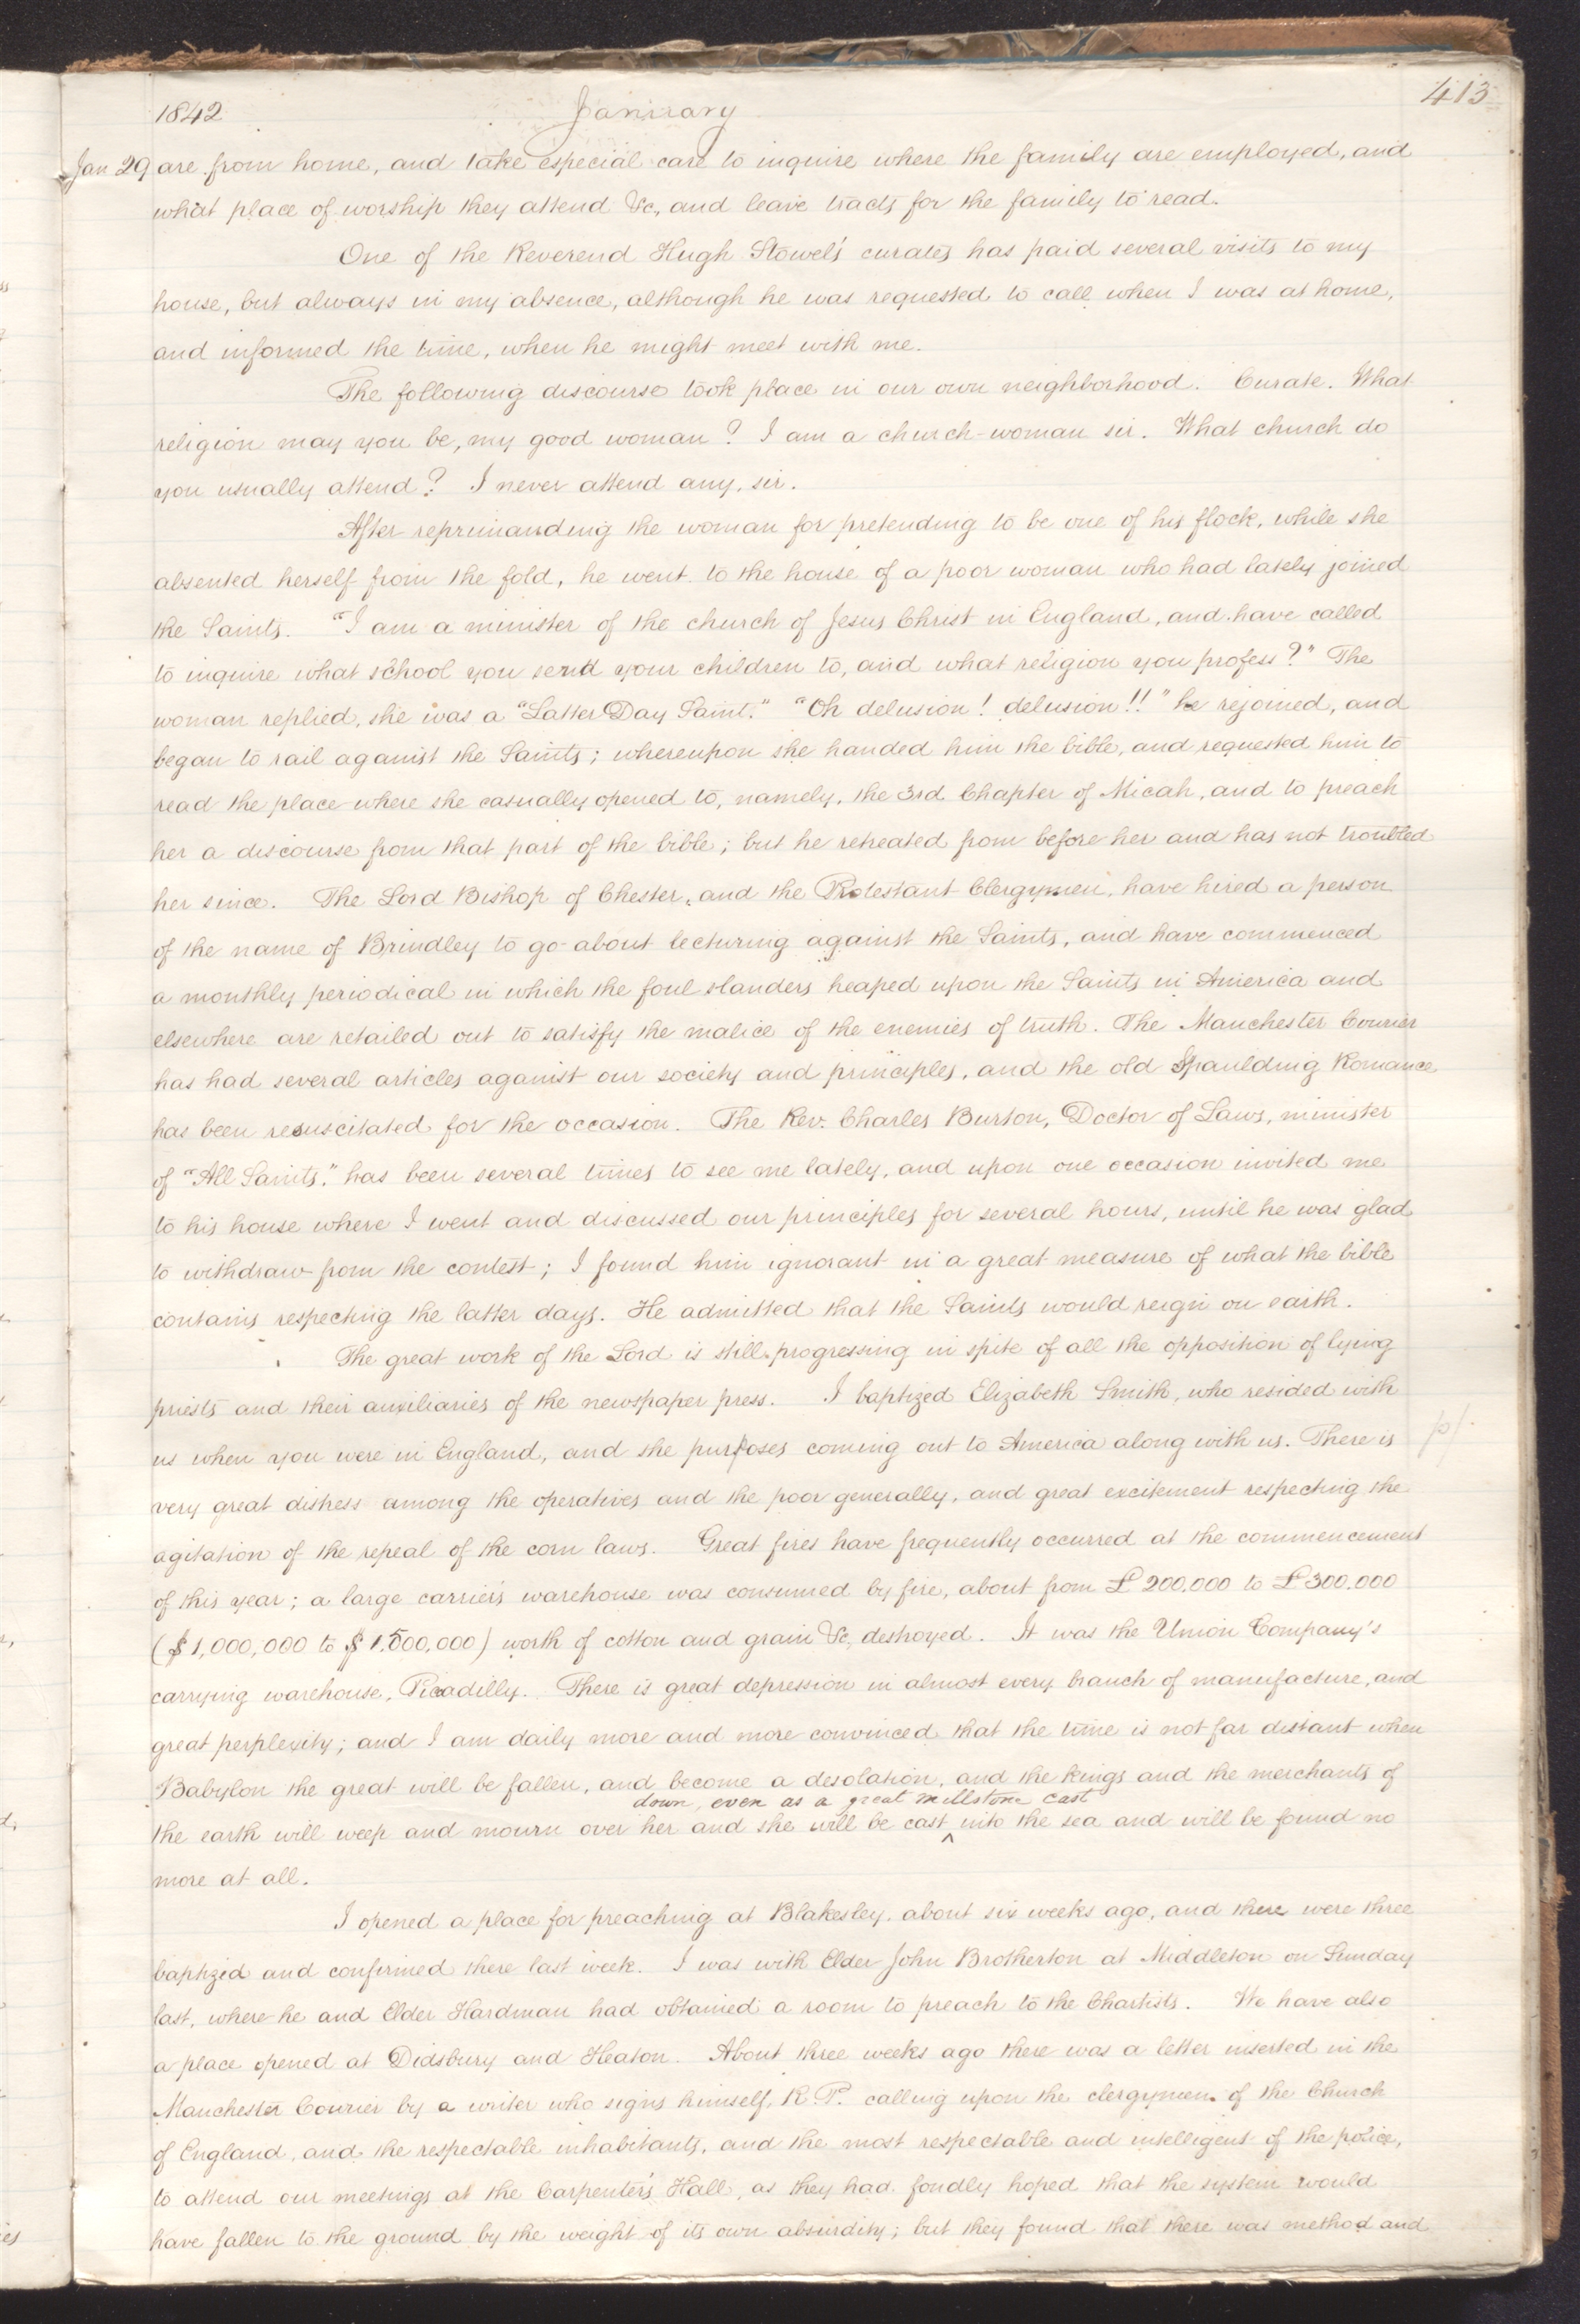 413
1842 January
Jan 29 are from home, and take especial care to inquire where the family are employed, and
what place of worship they attend &c, and leave tracts for the family to read.
One of the Reverend Hugh Stowel's curates has paid several visits to my
house, but always in my absence, although he was requested to call when I was at home,
and informed the time, when he might meet with me.
The following discourse took place in our own neighborhood. Curate. What
religion may you be, my good woman? I am a church-woman sir. What church do
you usually attend? I never attend any, sir.
After reprimanding the woman for pretending to be one of his flock, while she
absented herself from the fold, he went to the house of a poor woman who had lately joined
the Saints. "I am a minister of the church of Jesus Christ in England, and have called
to inquire what school you send your children to, and what religion you profess?" The
woman replied, she was a "Latter Day Saint." "Oh delusion! delusion!!" he rejoined, and
began to rail against the Saints; whereupon she handed him the bible, and requested him to
read the place where she casually opened to, namely, the 3rd Chapter of Micah, and to preach
her a discourse from that part of the bible; but he retreated from before her and has not troubled
her since. The Lord Bishop of Chester, and the Protestant Clergymen, have hired a person
of the name of Brindley to go about lecturing against the Saints, and have commenced
a monthly periodical in which the foul slanders heaped upon the Saints in America and
elsewhere are retailed out to satisfy the malice of the enemies of truth. The Manchester Courier
has had several articles against our society and principles, and the old Spaulding Romance
has been resuscitated for the occasion. The Rev. Charles Burton, Doctor of Laws, minister
of "All Saints." has been several times to see me lately, and upon one occasion invited me
to his house where I went and discussed our principles for several hours, until he was glad
to withdraw from the contest; I found him ignorant in a great measure of what the bible
contains respecting the latter days. He admitted that the Saints would reign on earth.
The great work of the Lord is still progressing in spite of all the opposition of lying
priests and their auxiliaries of the newspaper press. I baptized Elizabeth Smith, who resided with
us when you were in England, and she purposes coming out to America along with us. There is
very great distress among the operatives and the poor generally, and great excitement respecting the
agitation of the repeal of the corn laws. Great fires have frequently occurred at the commencement
of this year; a large carrier's warehouse was consumed by fire, about from £200,000 to £300.000
($1,000,000 to $1,500,000) worth of cotton and grain &c, destroyed. It was the Union Company's
carrying warehouse, Picadilly. There is great depression in almost every branch of manufacture, and
great perplexity; and I am daily more and more convinced that the time is not far distant when
Babylon the great will be fallen, and become a desolation, and the kings and the merchants of
down, even as a great millstone cast
the earth will weep and mourn over her and she will be cast ^ into the sea and will be found no
more at all.
I opened a place for preaching at Blakesley, about six weeks ago, and there were three
baptized and confirmed there last week. I was with Elder John Brotherton at Middleton on Sunday
last, where he and Elder Hardman had obtained a room to preach to the Chartists. We have also
a place opened at Didsbury and Heaton. About three weeks ago there was a letter inserted in the
Manchester Courier by a writer who signs himself, R. P. calling upon the clergymen of the Church
of England, and the respectable inhabitants, and the most respectable and intelligent of the police,
to attend our meetings at the Carpenter's Hall, as they had fondly hoped that the system would
have fallen to the ground by the weight of its own absurdity; but they found that there was method and